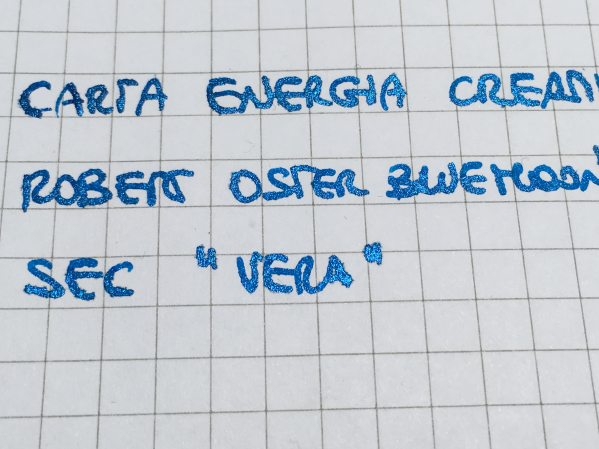 CARTA ENERGIA CREAN
ROBERT OSTER BLUE MOON
SEC "VERA"